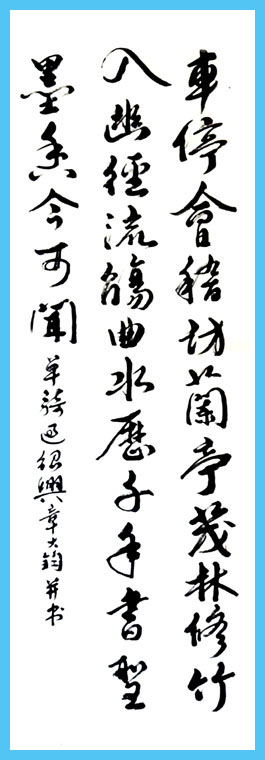 車停會稽坊蘭亭茂林修竹
入幽徑流觴曲水歷千年書聖
墨香今可聞
单騎過绍興章大鈞并书